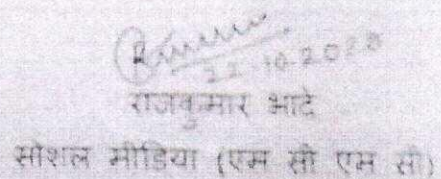 22-10-2020
राजकुमार भाटे
सोशल मीडिया (एम सी एम सी)